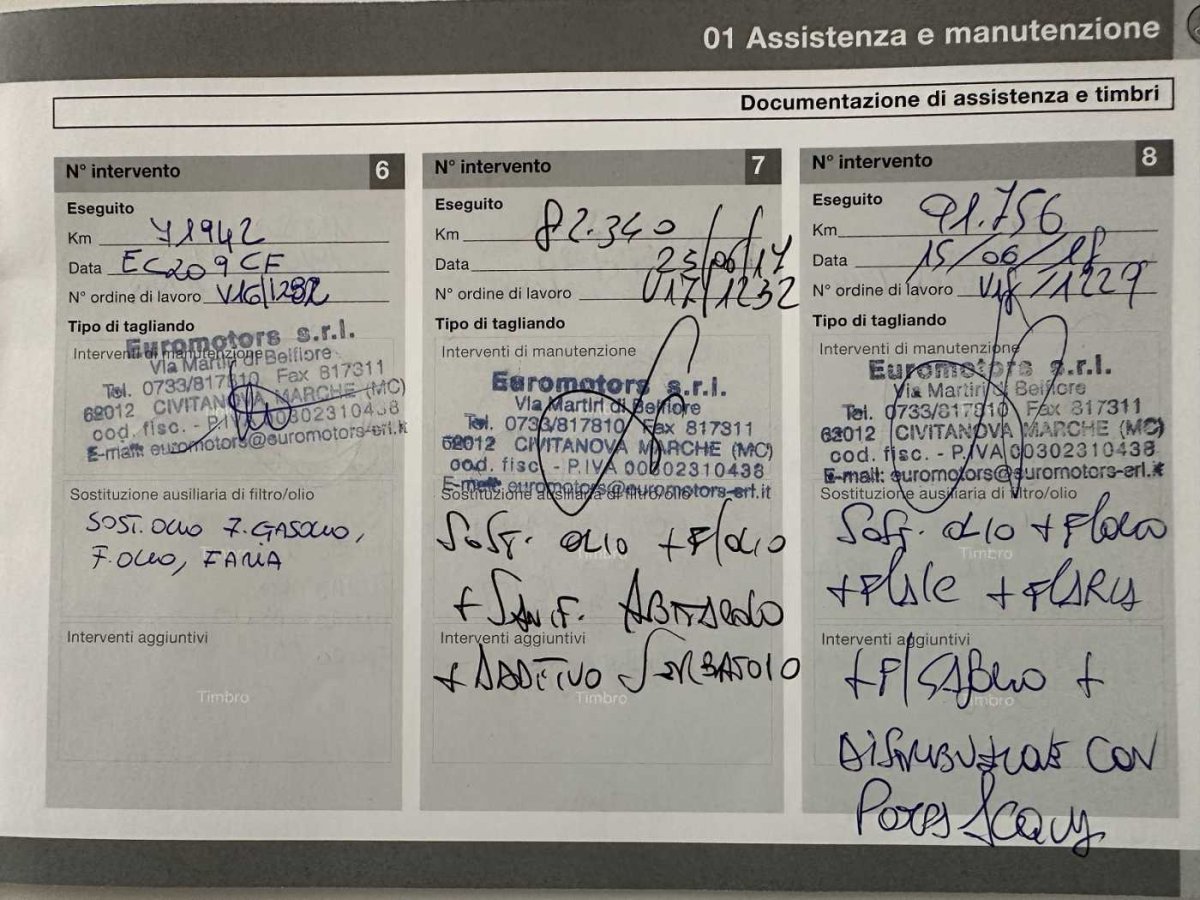 01 Assistenza e manutenzione
Documentazione di assistenza e timbri
N° intervento 6
Eseguito
Km 71942
Data EC209CF
N° ordine di lavoro V16/1282
Tipo di tagliando
Interventi di manutenzione
Euromotors s.r.l.
Via Martiri di Belfiore
Tel. 0733/817810 Fax 817311
62012 CIVITANOVA MARCHE (MC)
cod. fisc. - P.IVA 00302310438
E-mail: euromotors@euromotors-srl.it
Sostituzione ausiliaria di filtro/olio
SOST. OLIO F. GASOLIO,
F. OLIO, F ARIA
Timbro
Interventi aggiuntivi
Timbro
N° intervento 7
Eseguito
Km 82.340
Data 23/06/17
N° ordine di lavoro V17/1232
Tipo di tagliando
Interventi di manutenzione
Euromotors s.r.l.
Via Martiri di Belfiore
Tel. 0733/817810 Fax 817311
62012 CIVITANOVA MARCHE (MC)
cod. fisc. - P.IVA 00302310438
E-mail: euromotors@euromotors-srl.it
Sostituzione ausiliaria di filtro/olio
SOST. OLIO + F/OLIO
Timbro
+ SANIF. ABITACOLO
Interventi aggiuntivi
+ ADDITIVO SERBATOIO
Timbro
N° intervento 8
Eseguito
Km 91.756
Data 15/06/18
N° ordine di lavoro V18/1229
Tipo di tagliando
Interventi di manutenzione
Euromotors s.r.l.
Via Martiri di Belfiore
Tel. 0733/817810 Fax 817311
62012 CIVITANOVA MARCHE (MC)
cod. fisc. - P.IVA 00302310438
E-mail: euromotors@euromotors-srl.it
Sostituzione ausiliaria di filtro/olio
SOST. OLIO + F/OLIO
Timbro
Interventi aggiuntivi
Timbro
DISTRIBUZIONE CON
POMPA ACQUA